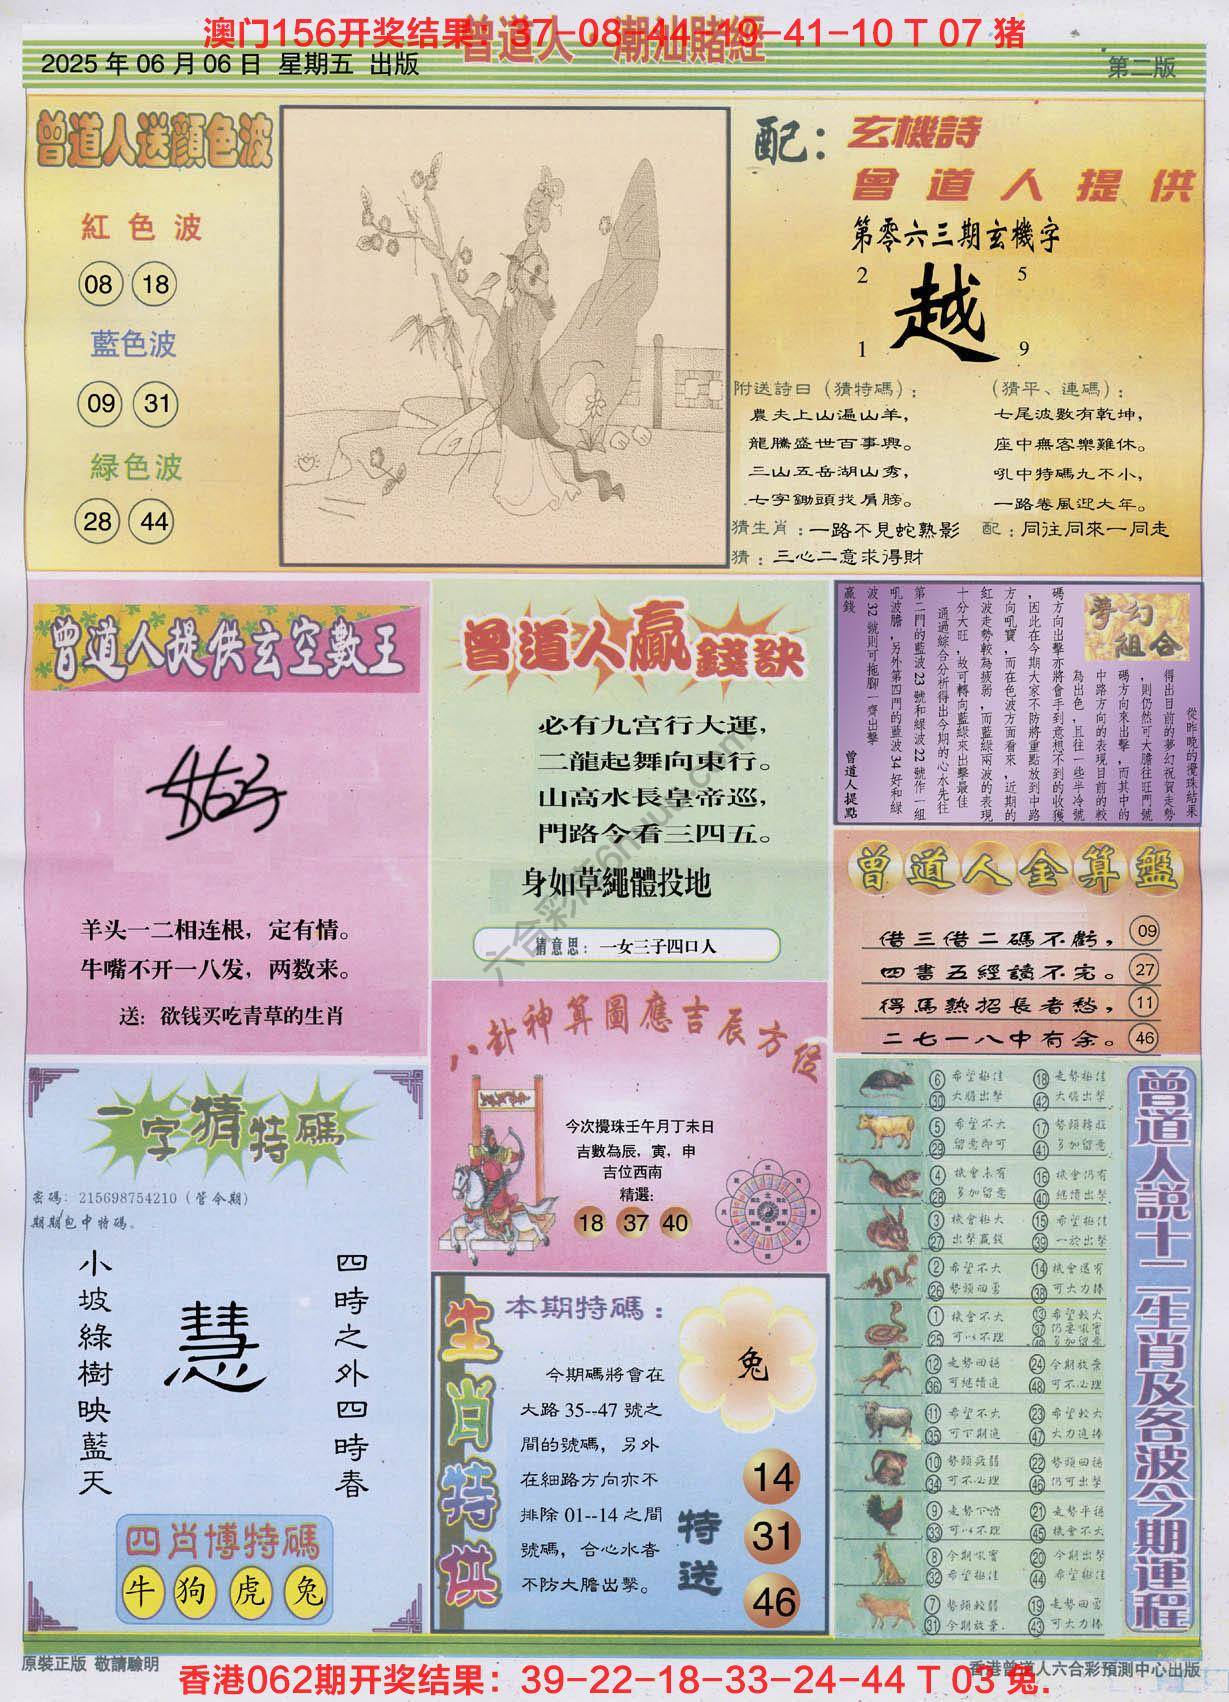 澳门156开奖结果：37-08-44-19-41-10 T 07 猪
曾道人 潮汕賭經
2025 年 06 月 06 日 星期五 出版
第二版
曾道人送顔色波
紅色波
08 18
藍色波
09 31
緑色波
28 44
配：玄機詩
曾道人提供
第零六三期玄機字
2 5
越
1 9
附送詩曰（猜特碼）：
農夫上山遍山羊，
龍騰盛世百事興。
三山五岳湖山秀，
七字鋤頭找肩膀。
（猜平、連碼）：
七尾波數有乾坤，
座中無客樂難休。
吼中特碼九不小，
一路卷風迎大年。
猜生肖：一路不見蛇熟影
配：同往同來一同走
猜：三心二意求得財
曾道人提供玄空數王
羊头一二相连根，定有情。
牛嘴不开一八发，两数来。
送：欲钱买吃青草的生肖
曾道人贏錢訣
必有九宫行大運，
二龍起舞向東行。
山高水長皇帝巡，
門路今看三四五。
身如草繩體投地
猜意思：一女三子四口人
夢幻組合
從昨晚的攪珠結果
得出目前的夢幻祝賀走勢
，則仍然可大膽往旺門號
碼方向來出擊，而其中的
中路方向的表現目前的較
為出色，且往一些半冷號
碼方向出擊亦將會手到意想不到的收獲
，因此在今期大家不防將重點放到中路
方向吼寶，而在色波方面看來，近期的
紅波走勢較為疲弱，而藍綠兩波的表現
十分大旺，故可轉向藍綠來出擊最佳
通過綜合分析得出今期的心水先往
第二門的藍波 23 號和綠波 22 號作一組
吼波膽，另外第四門的藍波 34 好和綠
波 32 號則可拖腳一齊出擊
贏錢
曾道人提點
曾道人金算盤
借三借二碼不虧， 09
四書五經讀不完。 27
得馬熱招長者愁， 11
二七一八中有余。 46
八卦神算圖應吉辰方位
今次攪珠壬午月丁未日
吉數為辰，寅，申
吉位西南
精選：
18 37 40
一字猜特碼
密碼：215698754210（管今期）
期期包中特碼。
小坡綠樹映藍天
慧
四時之外四時春
四肖博特碼
牛 狗 虎 兔
生肖特供
本期特碼：
兔
今期碼將會在
大路 35--47 號之
間的號碼，另外
在細路方向亦不
排除 01--14 之間
號碼，合心水者
不防大膽出擊。
特送
14
31
46
曾道人説十二生肖及各波今期運程
6 希望極佳 18 走勢極佳
30 大膽出擊 42 大膽出擊
5 希望不大 17 勢頭轉旺
29 留意即可 41 多加留意
4 機會未有 16 機會仍有
28 多加留意 40 繼續出擊
3 機會極大 15 希望極佳
27 出擊贏錢 39 一於出擊
2 希望不大 14 機會還有
26 勢頭回勇 38 可大力捧
1 機會不大 13 希望較大
25 可以不理 37 仍要吼實
49 多加留意
12 走勢回穩 24 今期放棄
36 可繼續追 48 可不必理
11 希望不大 23 希望較大
35 可下期追 47 大力追捧
10 勢頭疲弱 22 勢頭回穩
34 可不必理 46 仍可出擊
9 走勢下滑 21 走勢平穩
33 可以不理 45 機會不大
8 今期吼實 20 今期出擊
32 希望極佳 44 希望極佳
7 勢頭較弱 19 走勢回勇
31 今期放棄. 43 可大力捧
六合彩库6huu.com
原裝正版 敬請驗明
香港062期开奖结果：39-22-18-33-24-44 T 03 兔.
香港曾道人六合彩預測中心出版